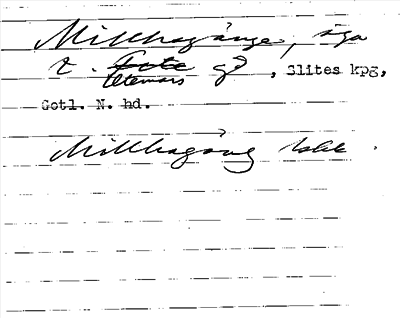 Millhagänge, äga
t. Otemars gd, Slites kpg,
Gotl. N. hd.
Millhagäng